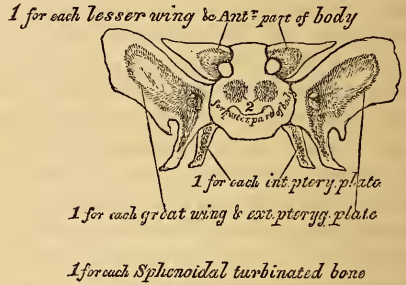 1 for each lesser wing & Antr. part of body
2
for poster. part of body
1 for each int. pteryg. plate
1 for each great wing & ext. pteryg. plate
1 for each Sphenoidal turbinated bone